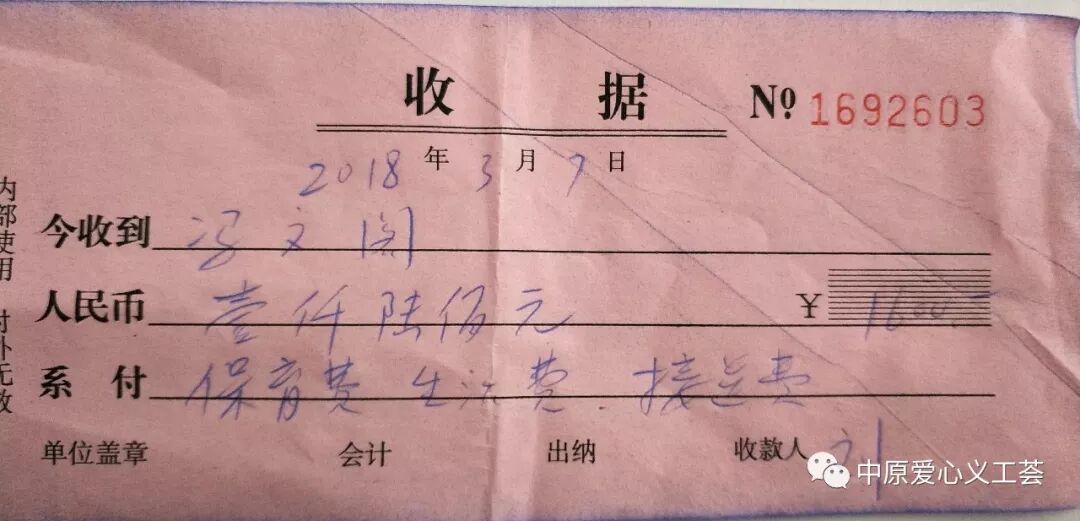 收 据 № 1692603
2018 年 3 月 7 日
今收到 冯文阁
人民币 壹仟陆佰元 ¥ 1600.-
系 付 保育费 生活费、接送费
单位盖章 会计 出纳 收款人 刘
内部使用 对外无效
中原爱心义工荟